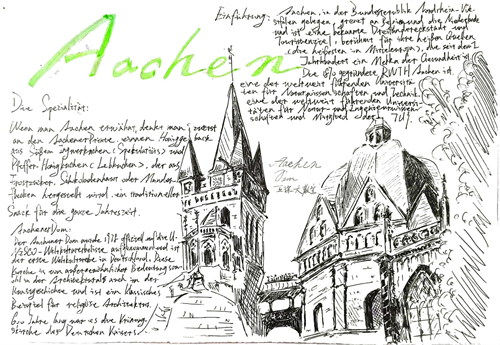 Aachen
Einführung: Aachen, in der Bundesrepublik Nordrhein-We
stfalen gelegen, grenzt an Belgien und die Niederlande
und ist eine bekannte Dreiländereckstadt und
Touristenziel, berühmt für ihre heißen Quellen
(die heißesten in Mitteleuropa), die seit dem 1.
Jahrhundert ein Mekka der Gesundheit ist
Die 1870 gegründete RWTH Aachen ist
eine der weltweit führenden Universitä
ten für Naturwissenschaften und Technik.
eine der weltweit führenden Universi
täten für Natur- und Ingenieurwissen-
schaften und Mitglied der "TU9".
Die Spezialität:
Wenn man Aachen erwähnt, denkt man zuerst
an den Aachener Printe, einem
aus süßem Ingwerkuchen (Spekulatius) und
Pfeffer-Honigkuchen (Lebkuchen), der aus
Trockenobst, Schokoladenguss oder Mandel-
flocken hergestellt wird, ein traditioneller
Snack für die ganze Jahreszeit.
Aachener Dom:
Der Aachener Dom wurde 1978 offiziell auf die U-
NESCO-Weltkulturerbeliste aufgenommen und ist
der erste in Deutschland. Diese
Kirche ist von außergewöhnlicher Bedeutung sowo
hl in der Architektur als auch in der
Kunstgeschichte und ist ein klassisches
Beispiel für religiöse Architektur.
600 Jahre lang war es die Krönung
skirche des Deutschen Kaisers.
Aachen
Dom
亚琛大教堂